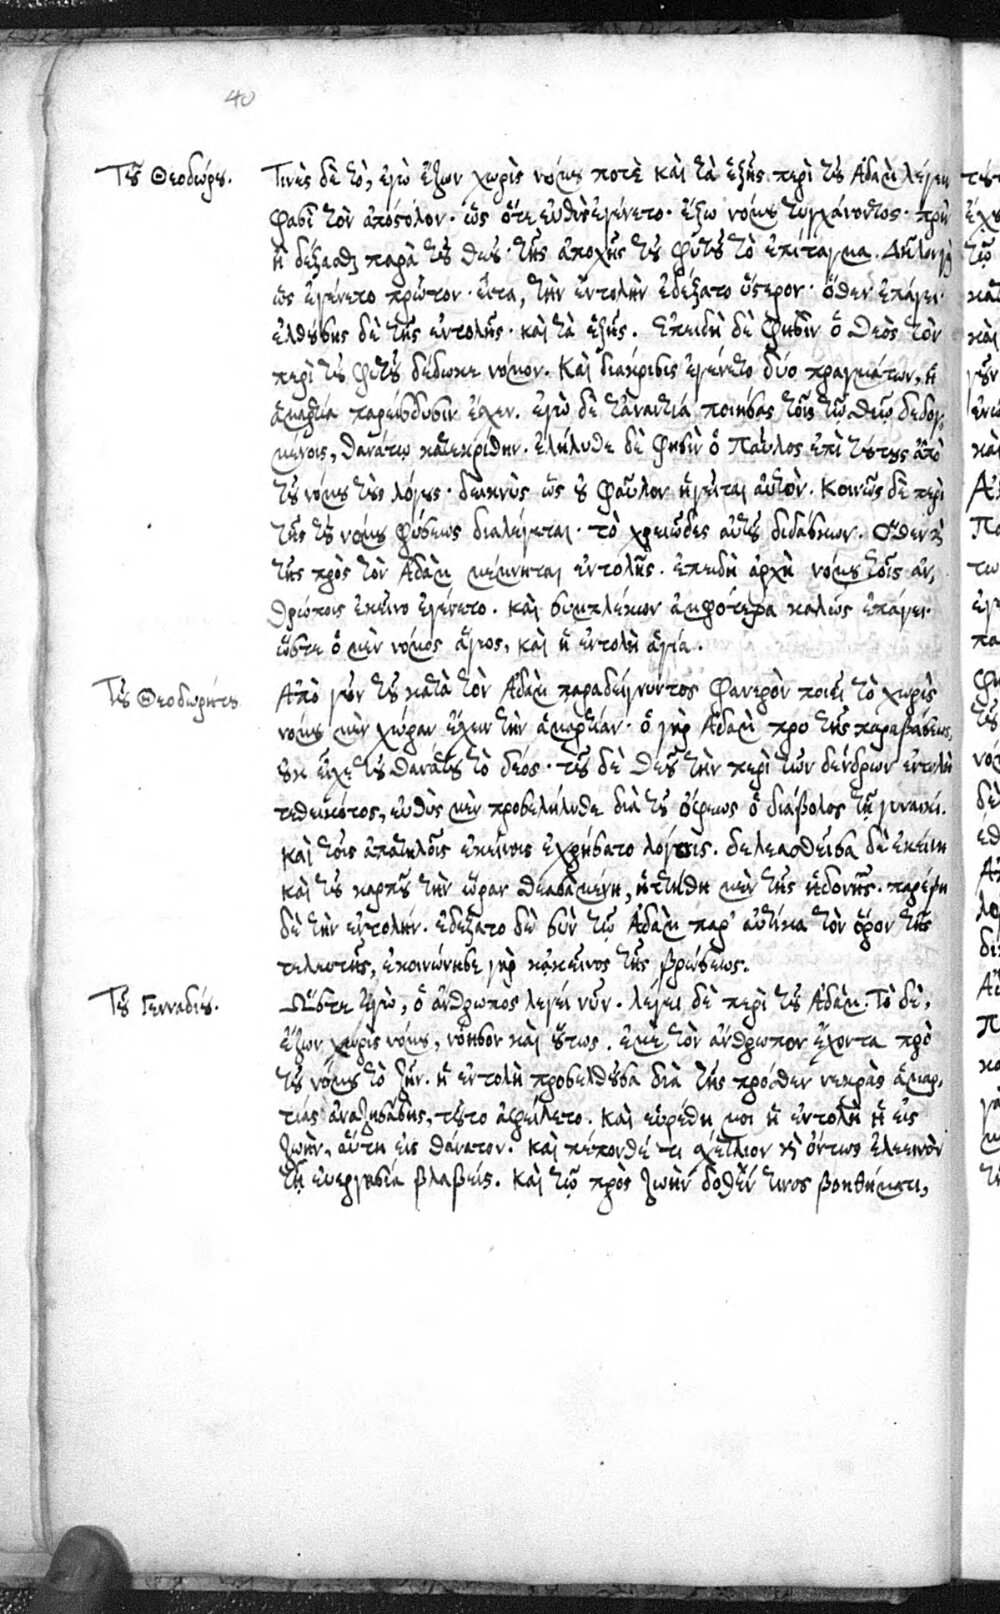 40
Τοῦ Θεοδώρου. Τινὲς δὲ τὸ, ἐγὼ ἔζων χωρὶς νόμου ποτὲ καὶ τὰ ἑξῆς περὶ τοῦ Ἀδὰμ λέγειν
φασὶ τὸν ἀπόστολον· ὡς ὅτε εὐθὺς ἐγένετο· ἔξω νόμου τυγχάνοντος· πρὶν
ἢ δέξασθαι παρὰ τοῦ Θεοῦ τῆς ἀποχῆς τοῦ φυτοῦ τὸ ἐπίταγμα. Δῆλον γὰρ
ὡς ἐγένετο πρῶτον· εἶτα, τὴν ἐντολὴν ἐδέξατο ὕστερον· ὅθεν ἐπάγει·
ἐλθούσης δὲ τῆς ἐντολῆς· καὶ τὰ ἑξῆς. Ἐπειδὴ δὲ φησὶν ὁ Θεὸς τὸν
περὶ τοῦ φυτοῦ δέδωκε νόμον. Καὶ διάκρισις ἐγένετο δύο πραγμάτων, ἡ
ἁμαρτία παρείσδυσιν ἔσχεν. ἐγὼ δὲ τἀναντία ποιήσας τοῖς τῷ Θεῷ δεδογ,
μένοις, θανάτῳ κατεκρίθην. ἐλήλυθε δὲ φησὶν ὁ Παῦλος ἐπὶ τούτους ἀπὸ
τοῦ νόμου τοὺς λόγους· δεικνὺς ὡς οὐ φαῦλον ἡγεῖται αὐτὸν. Κοινῶς δὲ περὶ
τῆς τοῦ νόμου φύσεως διαλέγεται· τὸ χρειῶδες αὐτοῦ διδάσκων. Ὅθεν καὶ
τῆς πρὸς τὸν Ἀδὰμ μέμνηται ἐντολῆς. ἐπειδὴ ἀρχὴ νόμου τοῖς ἀν,
θρώποις ἐκεῖνο ἐγένετο. καὶ συμπλέκων ἀμφότερα καλῶς ἐπάγει·
ὥστε ὁ μὲν νόμος ἅγιος, καὶ ἡ ἐντολὴ ἁγία.
Τοῦ Θεοδωρήτου Ἀπὸ γοῦν τοῦ κατὰ τὸν Ἀδὰμ παραδείγματος φανερὸν ποιεῖ τὸ χωρὶς
νόμου μὲν χώραν ἔχειν τὴν ἁμαρτίαν· ὁ γὰρ Ἀδὰμ προ τῆς παραβάσεως,
οὐκ εἶχε τοῦ θανάτου τὸ δέος· τοῦ δὲ Θεοῦ τὴν περὶ τῶν δένδρων ἐντολὴν
τεθεικότος, εὐθὺς μὲν προσελήλυθε διὰ τοῦ ὄφεως ὁ διάβολος τῇ γυναικί.
καὶ τοῖς ἀπατηλοῖς ἐκείνοις ἐχρήσατο λόγοις. δελεασθεῖσα δὲ ἐκείνη
καὶ τοῦ καρποῦ τὴν ὥραν θεασαμένη, ἡττήθη μὲν τῆς ἡδονῆς. παρέβη
δὲ τὴν ἐντολήν. ἐδέξατο δὲ σὺν τῷ Ἀδὰμ παρ' αὐτίκα τὸν ὅρον τῆς
τελευτῆς, ἐκοινώνησε γὰρ κἀκεῖνος τῆς βρώσεως.
Τοῦ Γενναδίου. Ὥστε ἐγὼ, ὁ ἄνθρωπος λέγει νῦν. λέγει δὲ περὶ τοῦ Ἀδὰμ. Τὸ δὲ,
ἔζων χωρὶς νόμου, νόησον καὶ οὕτως. ἐμὲ τὸν ἄνθρωπον ἔχοντα πρὸ
τοῦ νόμου τὸ ζῆν. ἡ ἐντολὴ προσελθοῦσα διὰ τῆς πρόσθεν νεκρᾶς ἁμαρ,
τίας ἀναζησάσης, τοῦτο ἀφείλετο. Καὶ εὑρέθη μοι ἡ ἐντολὴ ἡ εἰς
ζωὴν, αὕτη εἰς θάνατον. καὶ πέπονθέ τι σχέτλιον καὶ ὄντως ἐλεεινὸν
τῇ εὐεργεσίᾳ βλαβείς. Καὶ τῷ πρὸς ζωὴν δοθέν τινος βοηθήματι,